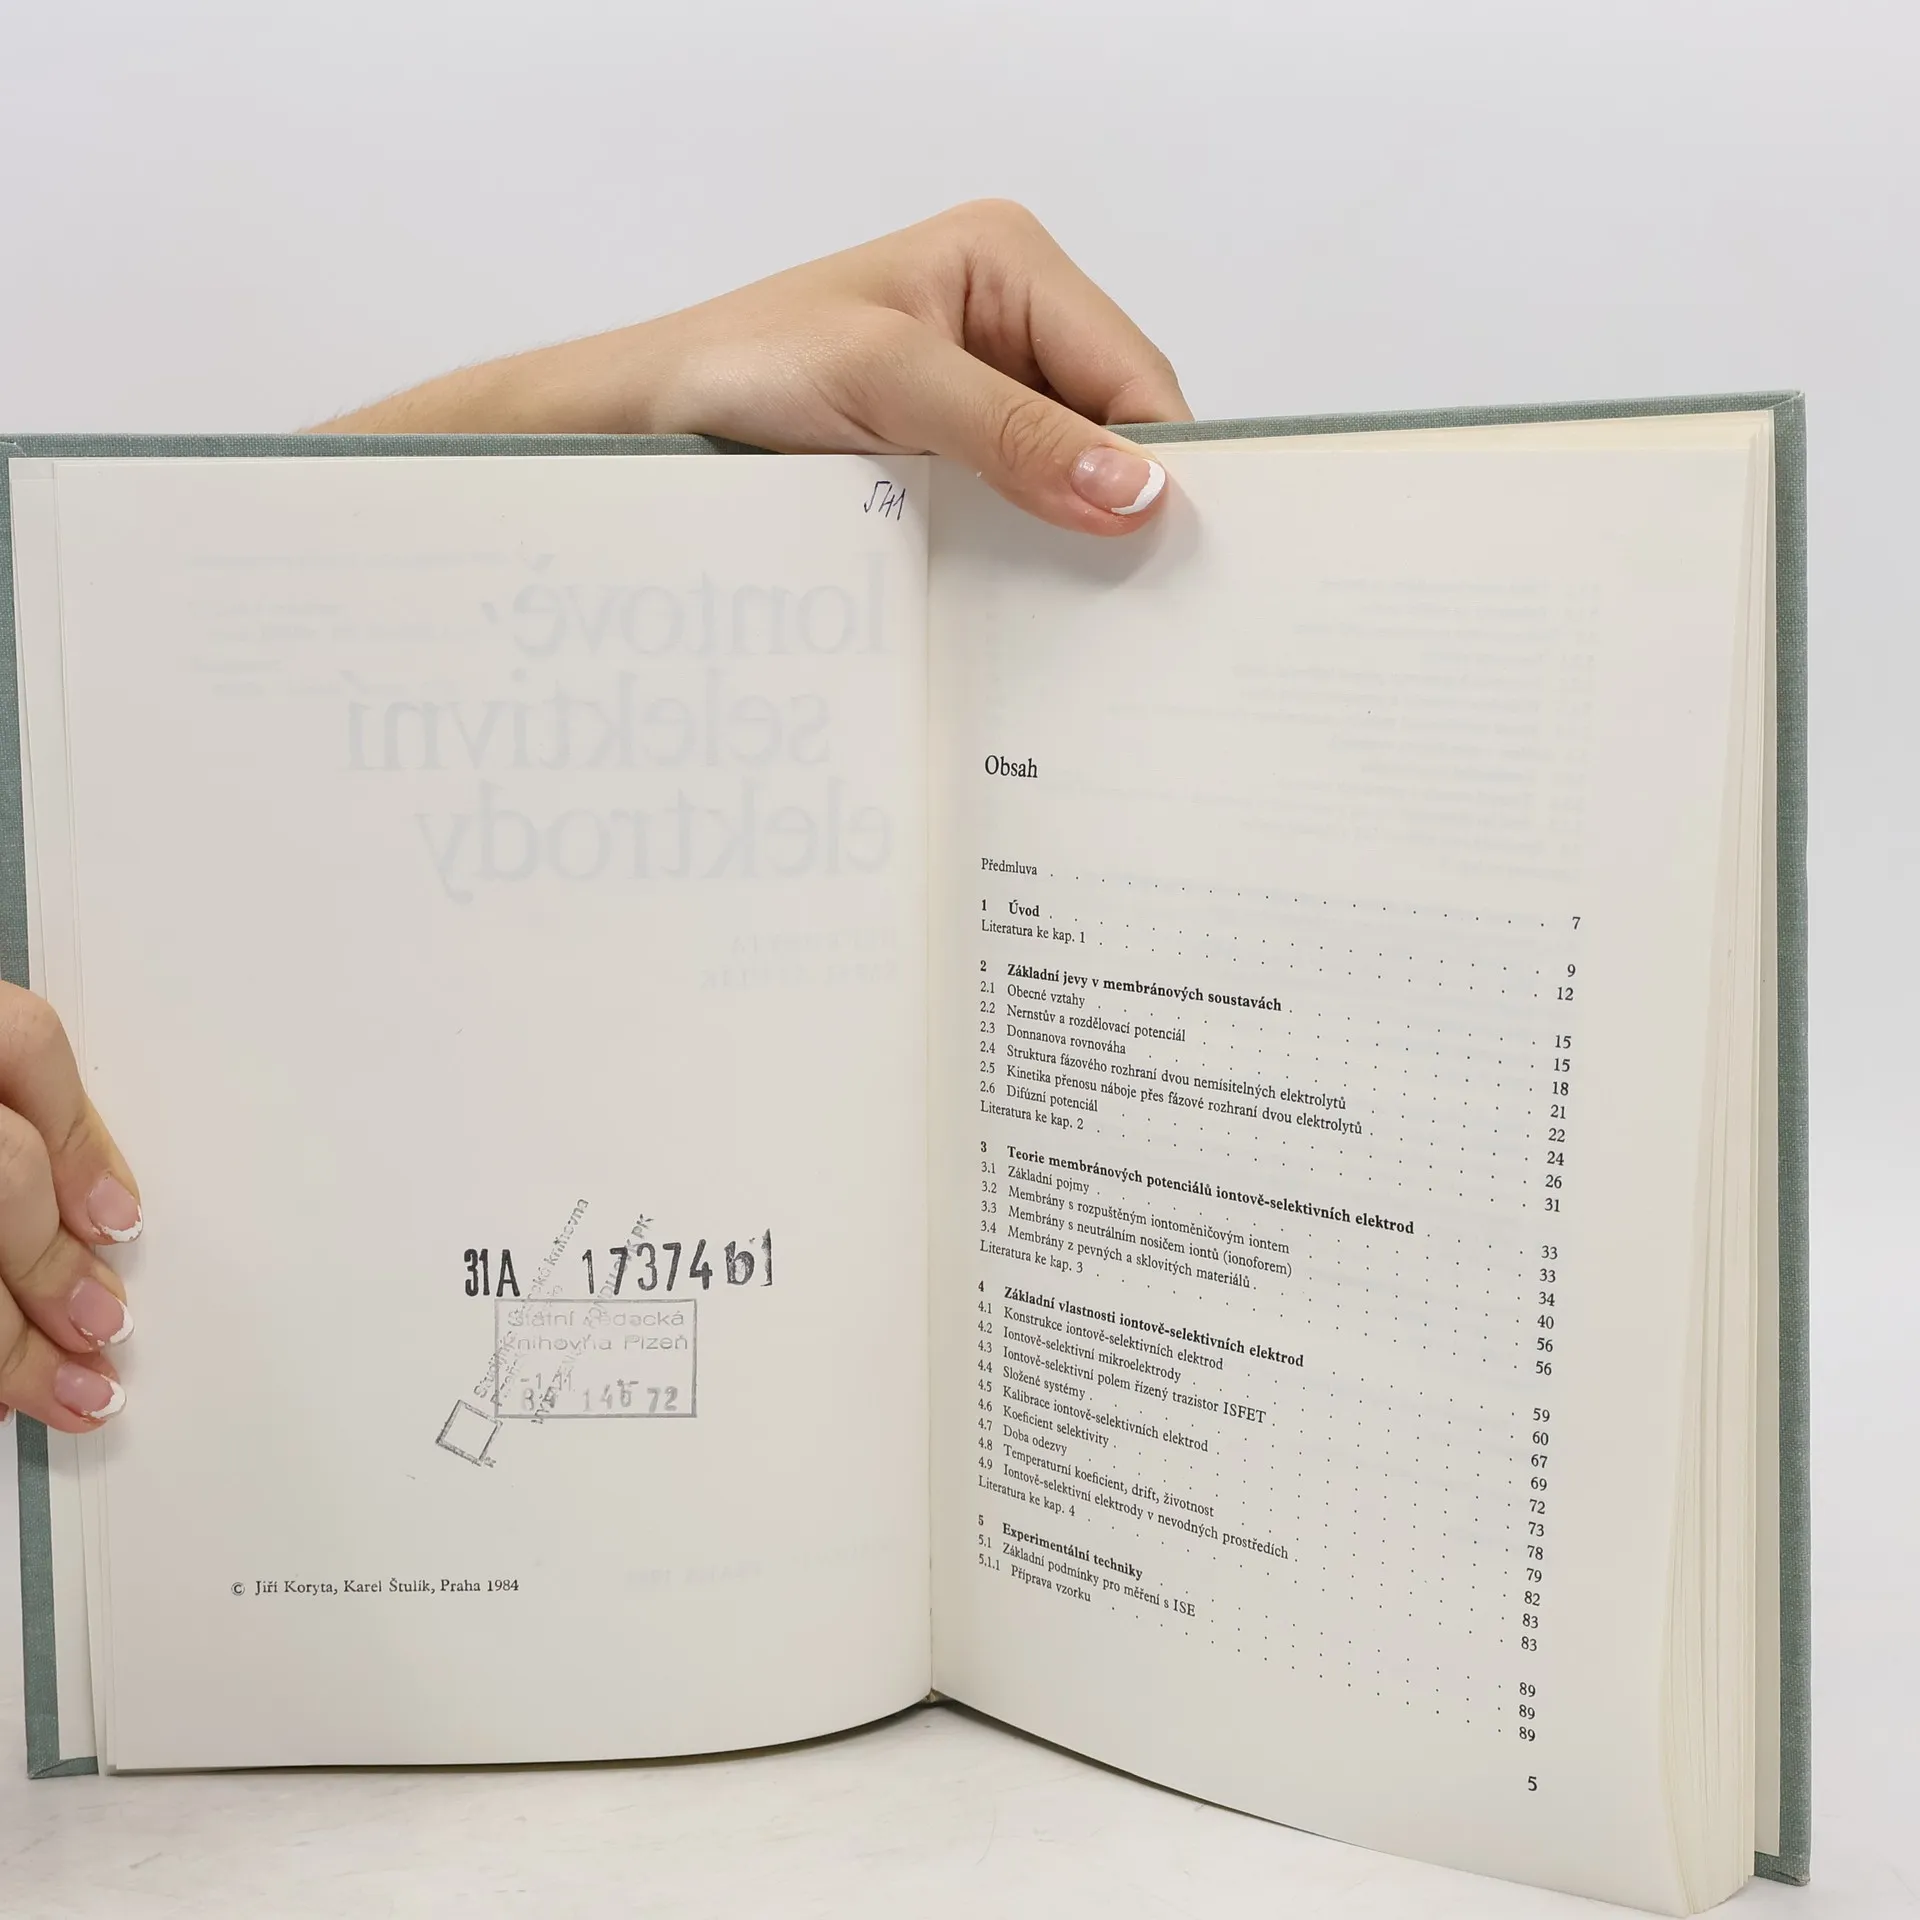 541
Iontově-
selektivní
elektrody
31A 17374 b1
Státní vědecká
knihovna Plzeň
© Jiří Koryta, Karel Štulík, Praha 1984
Obsah
Předmluva . . . 7
1 Úvod . . . 9
Literatura ke kap. 1 . . . 12
2 Základní jevy v membránových soustavách . . . 15
2.1 Obecné vztahy . . . 15
2.2 Nernstův a rozdělovací potenciál . . . 18
2.3 Donnanova rovnováha . . . 21
2.4 Struktura fázového rozhraní dvou nemísitelných elektrolytů . . . 22
2.5 Kinetika přenosu náboje přes fázové rozhraní dvou elektrolytů . . . 24
2.6 Difúzní potenciál . . . 26
Literatura ke kap. 2 . . . 31
3 Teorie membránových potenciálů iontově-selektivních elektrod . . . 33
3.1 Základní pojmy . . . 33
3.2 Membrány s rozpuštěným iontoměničovým iontem . . . 34
3.3 Membrány s neutrálním nosičem iontů (ionoforem) . . . 40
3.4 Membrány z pevných a sklovitých materiálů . . . 56
Literatura ke kap. 3 . . . 56
4 Základní vlastnosti iontově-selektivních elektrod . . . 59
4.1 Konstrukce iontově-selektivních elektrod . . . 60
4.2 Iontově-selektivní mikroelektrody . . . 67
4.3 Iontově-selektivní polem řízený trazistor ISFET . . . 69
4.4 Složené systémy . . . 72
4.5 Kalibrace iontově-selektivních elektrod . . . 73
4.6 Koeficient selektivity . . . 78
4.7 Doba odezvy . . . 79
4.8 Temperaturní koeficient, drift, životnost . . . 82
4.9 Iontově-selektivní elektrody v nevodných prostředích . . . 83
Literatura ke kap. 4 . . . 83
5 Experimentální techniky . . . 89
5.1 Základní podmínky pro měření s ISE . . . 89
5.1.1 Příprava vzorku . . . 89
5